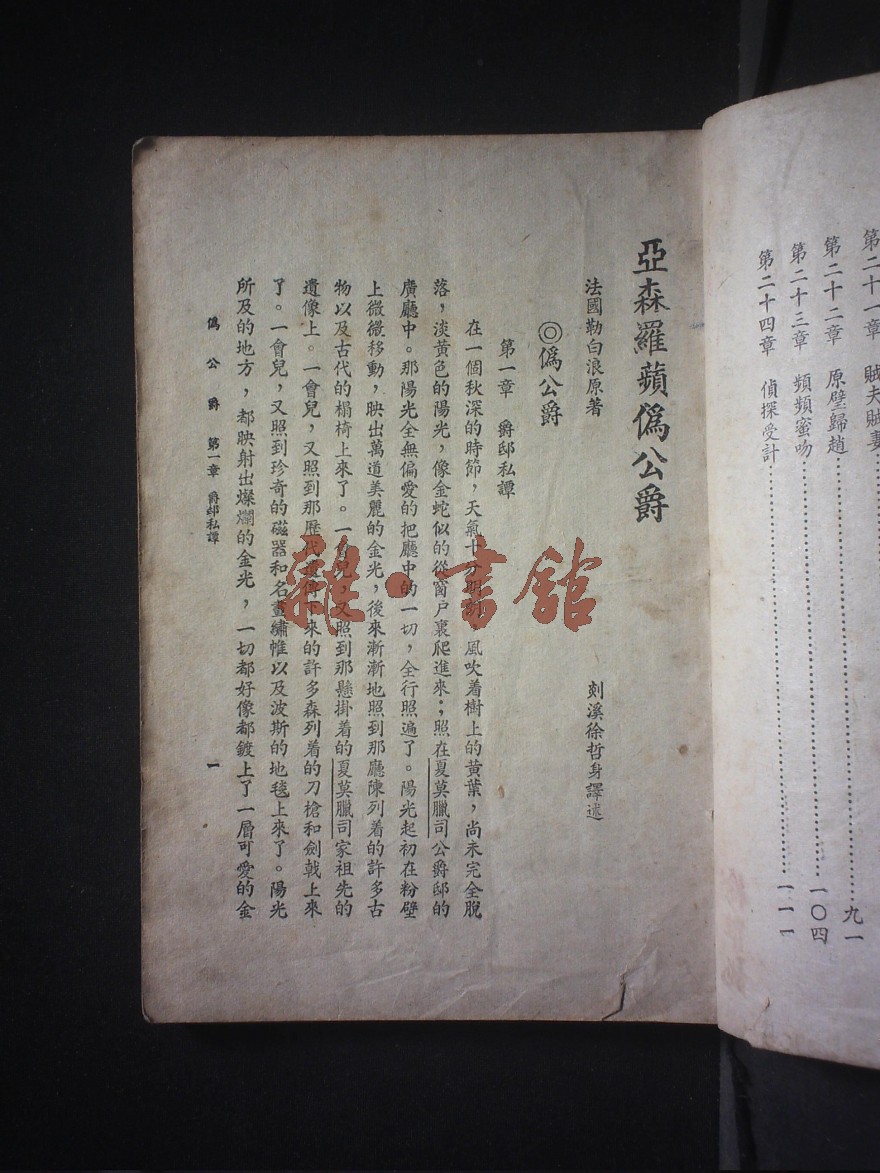 第二十一章 賊夫賊妻……九一
第二十二章 原璧歸趙……一〇四
第二十三章 頻頻蜜吻……
第二十四章 偵探受計……一一一
亞森羅蘋僞公爵
法國勒白浪原著 剡溪徐哲身譯述
◎僞公爵
第一章 爵邸私譚
在一個秋深的時節,天氣十分 風吹着樹上的黃葉,尚未完全脫
落,淡黃色的陽光,像金蛇似的從窗户裏爬進來;照在夏莫臘司公爵邸的
廣廳中。那陽光全無偏愛的把廳中的一切,全行照遍了。陽光起初在粉壁
上微微移動,映出萬道美麗的金光,後來漸漸地照到那廳陳列着的許多古
物以及古代的榻椅上來了。一會兒,又照到那懸掛着的夏莫臘司家祖先的
遺像上。一會兒,又照到那歷代遺傳下來的許多森列着的刀槍和劍戟上來
了。一會兒,又照到珍奇的磁器和名畫繡帷以及波斯的地毯上來了。陽光
所及的地方,都映射出燦爛的金光,一切都好像都鍍上了一層可愛的金
僞公爵 第一章 爵邸私譚 一
雜·書館